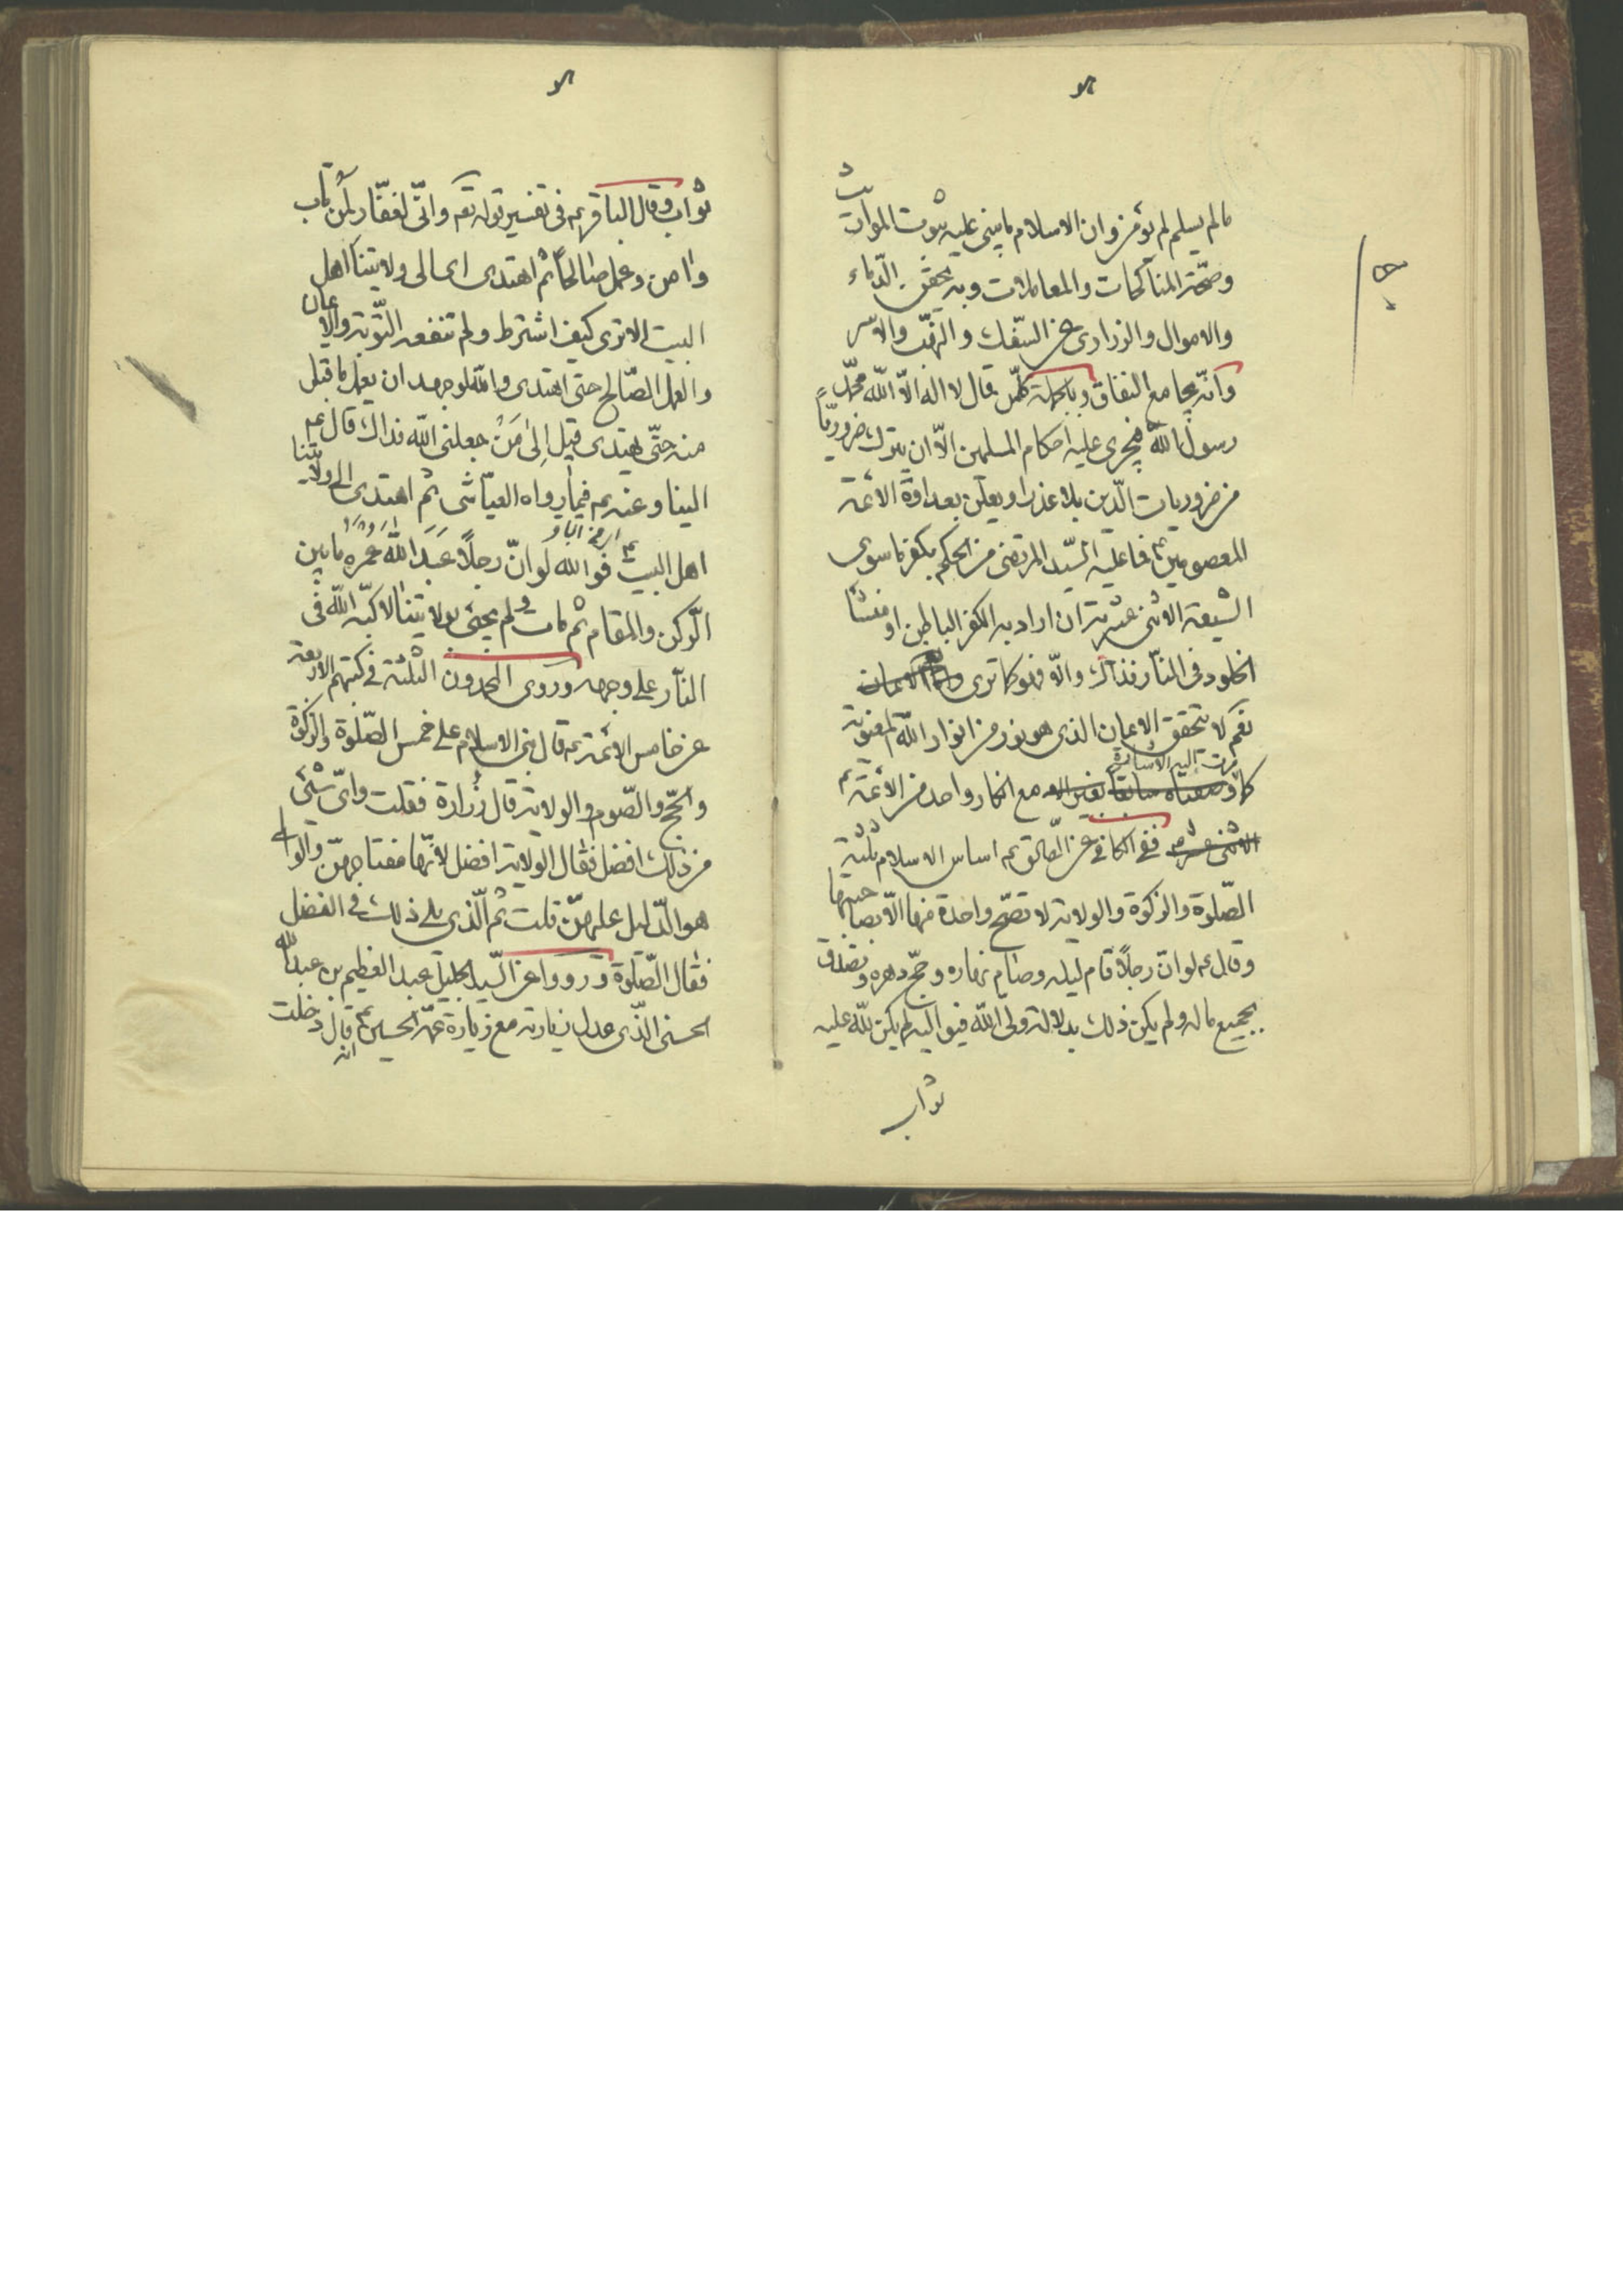 مالم يسلم لم يؤمن وان الاسلام ما يبنى عليه ثبوت المواريث
وصحّة المناكحات والمعاملات وبه يحقن الدّماء
والاموال والذرارى عن السّفك والنهب والاسر
وانّه يجامع النفاق وبالجملة كلّ من قال لا اله الّا الله محمّد
رسول الله فيجرى عليه احكام المسلمين الّا ان يترك ضروريّاً
من ضروريات الدّين بلا عذر او يعلن بعداوة الائمّة
المعصومين ع فما عليه السّيد المرتضى من الحكم بكفر ما سوى
الشيعة الاثنى عشرية ان اراد به الكفر الباطن او منشأ
الخلود فى النّار فذاك والّا فهو كما ترى
نعم لا يتحقق الايمان الذى هو نور من انوار الله المعنويّة
كما مرت اليه الاشارة مع انكار واحد من الائمّة ع
ففى الكافى عن الصّادق ع اساس الاسلام ثلثة
الصّلوة والزكوة والولاية لا تصحّ واحدة منها الّا بصاحبتها
وقال ع لو انّ رجلاً قام ليله وصام نهاره وحجّ دهره وتصدّق
بجميع ماله ولم يكن ذلك بدلالة ولى الله فيواليه لم يكن لله عليه
ثواب
ثواب وقال الباقر ع فى تفسير قوله تعه وانّى لغفّار لمن تاب
وامن وعمل صالحاً ثم اهتدى اى الى ولايتنا اهل
البيت الا ترى كيف اشترط ولم تنفعه التّوبة والايمان
والعمل الصّالح حتى اهتدى والله لو جهد ان يعمل ما قبل
منه حتّى يهتدى قيل الى من جعلنى الله فداك قال ع
الينا وعنه ع فيما رواه العيّاشى ثم اهتدى الى ولايتنا
اهل البيت ع فوالله لو انّ رجلاً عبد الله عمره ما بين
الرّكن والمقام ثم مات ولم يجئ بولايتنا لاكبّه الله فى
النّار على وجهه وروى المحمدون الثلثة فى كتبهم الاربعة
عن خامس الائمّة ع قال بنى الاسلام على خمس الصّلوة والزكوة
والحجّ والصّوم والولاية قال زرارة فقلت واىّ شئ
من ذلك افضل فقال الولاية افضل لانّها مفتاحهنّ والوالى
هو الدّليل عليهنّ قلت ثم الّذى يلى ذلك فى الفضل
فقال الصّلوة ورووا عن السّيد الجليل عبد العظيم بن عبد الله
الحسنى الذّى عدل زيارته مع زيارة عمّه الحسين ع انه قال دخلت